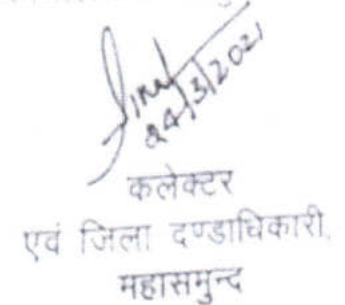 24/3/2021
कलेक्टर
एवं जिला दण्डाधिकारी,
महासमुन्द